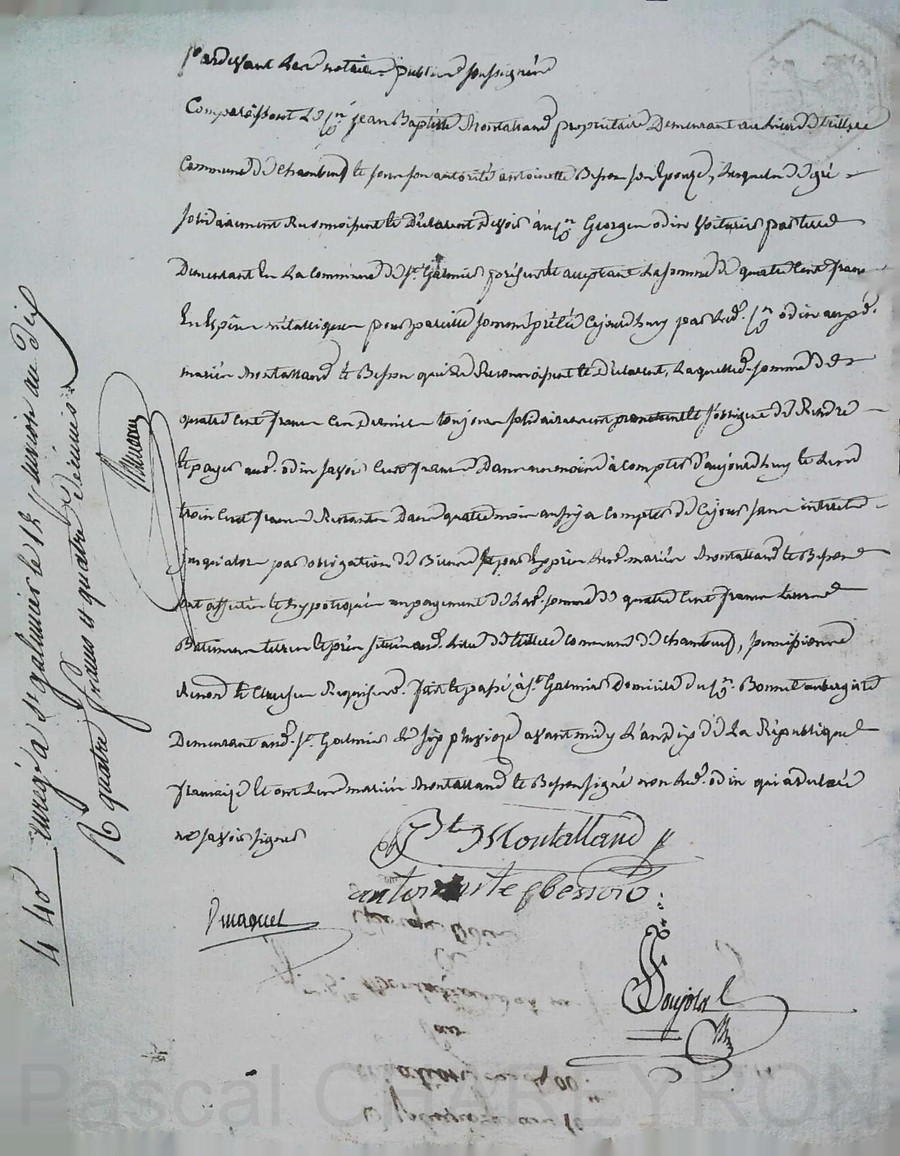 Pardevant les notaires publics soussignés
Comparaissent le Sr Jean Baptiste Montalland propriétaire demeurant au lieu de
Commune de Chambeuf et sous son autorité antoinette Besson son Epouze, lesquels de gré
solidairement Reconnoissent et Déclarent devoir au Sr Georges odin voiturier par terre
Demeurant En la Commune de St Galmier présent et acceptant la somme de quatre Cent francs
En Espèces métalliques pour pareille somme prêtée Cejourd'huy par led. Sr odin auxd.
mariés Montalland et Besson qui le Reconnoissent et déclarent, laquelle d. somme de
quatre Cent francs Ces derniers toujours solidairement promettent et s'obligent de Rendre
et payer aud. odin savoir Cent francs dans un mois à compter d'aujourd'huy et les
trois Cent francs Restants dans quatre mois aussy a Compter de Ce jour sans intérêts
jusqu'alors par obligation de Biens et par Exprès lesd. mariés Montalland et Besson
ont affecté et hypotéqué au payement de lad. somme de quatre Cent francs leurs
Batiments terres et prés situés aud. lieu de commune de Chambeuf, soumissions
Renon. et Clauses Requises. Fait et passé à St Galmier Domicile du Sr Bonnet aubergiste
Demeurant aud. St Galmier le six pluviose avant midy l'an dix de La République
française et ont lesd. mariés Montalland et Besson signé non led. odin qui a déclaré
ne savoir signer
Bte Montalland
antoinette besson
Pujol
4 40 Enregé à St galmier le 12 pluviose an Dix
R quatre francs et quatre décimes
Pascal CHALEYRON